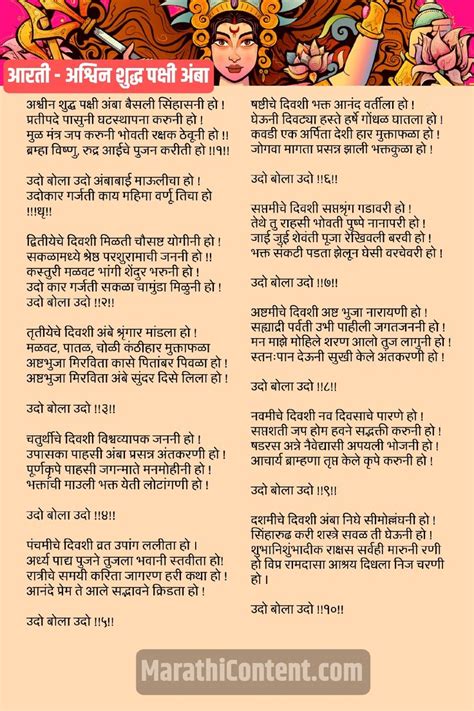 आरती - अश्विन शुद्ध पक्षी अंबा
अश्वीन शुद्ध पक्षी अंबा बैसली सिंहासनी हो !
प्रतीपदे पासुनी घटस्थापना करुनी हो !
मुळ मंत्र जप करुनी भोवती रक्षक ठेवूनी हो !!
ब्रम्हा विष्णु, रुद्र आईचे पुजन करीती हो !!१!!
उदो बोला उदो अंबाबाई माऊलीचा हो !
उदोकार गर्जती काय महिमा वर्णू तिचा हो
!!!धृ!!
द्वितीयेचे दिवशी मिळती चौसष्ठ योगीनी हो !
सकळामध्ये श्रेष्ठ परशुरामाची जननी हो !!
कस्तुरी मळवट भांगी शेंदुर भरुनी हो !
उदो कार गर्जती सकळा चामुंडा मिळुनी हो !
उदो बोला उदो !!२!!
तृतीयेचे दिवशी अंबे श्रृंगार मांडला हो !
मळवट, पातळ, चोळी कंठीहार मुक्ताफळा
अष्टभुजा मिरविता कासे पितांबर पिवळा हो !
अष्टभुजा मिरविता अंबे सुंदर दिसे लिला हो !
उदो बोला उदो !!३!!
चतुर्थीचे दिवशी विश्वव्यापक जननी हो !
उपासका पाहसी अंबा प्रसन्न अंतकरणी हो !
पूर्णकृपे पाहसी जगन्माते मनमोहीनी हो !
भक्तांची माउली भक्त येती लोटांगणी हो !
उदो बोला उदो !!४!!
पंचमीचे दिवशी व्रत उपांग ललीता हो !
अर्ध्य पाद्य पुजने तुजला भवानी स्तवीता हो!
रात्रीचे समयी करिता जागरण हरी कथा हो !
आनंदे प्रेम ते आले सद्भावने क्रिडता हो !
उदो बोला उदो !!५!!
षष्टीचे दिवशी भक्त आनंद वर्तीला हो !
घेऊनी दिवट्या हस्ते हर्षे गोंधळ घातला हो !
कवडी एक अर्पिता देशी हार मुक्ताफळा हो !
जोगवा मागता प्रसन्न झाली भक्तकुळा हो !
उदो बोला उदो !!६!!
सप्तमीचे दिवशी सप्तश्रृंग गडावरी हो !
तेथे तु राहसी भोवती पुष्पे नानापरी हो !
जाई जुई शेवंती पूजा रेखिवली बरवी हो !
भक्त संकटी पडता झेलून घेसी वरचेवरी हो !
उदो बोला उदो !!७!!
अष्टमीचे दिवशी अष्ट भुजा नारायणी हो !
सह्याद्री पर्वती उभी पाहीली जगतजननी हो !
मन माझे मोहिले शरण आलो तुज लागुनी हो !
स्तनःपान देऊनी सुखी केले अंतकरणी हो !
उदो बोला उदो !!८!!
नवमीचे दिवशी नव दिवसाचे पारणे हो !
सप्तशती जप होम हवने सद्भक्ती करुनी हो !
षडरस अन्ने नैवेद्यासी अपयली भोजनी हो !
आचार्य ब्राम्हणा तृप्त केले कृपे करुनी हो !
उदो बोला उदो !!९!!
दशमीचे दिवशी अंबा निघे सीमोल्लंघनी हो !
सिंहारुढ करी शस्त्रे सवळ ती घेऊनी हो !
शुभानिशुंभादीक राक्षस सर्वही मारुनी रणी
हो विप्र रामदासा आश्रय दिधला निज चरणी
हो !
उदो बोला उदो !!१०!!
MarathiContent.com